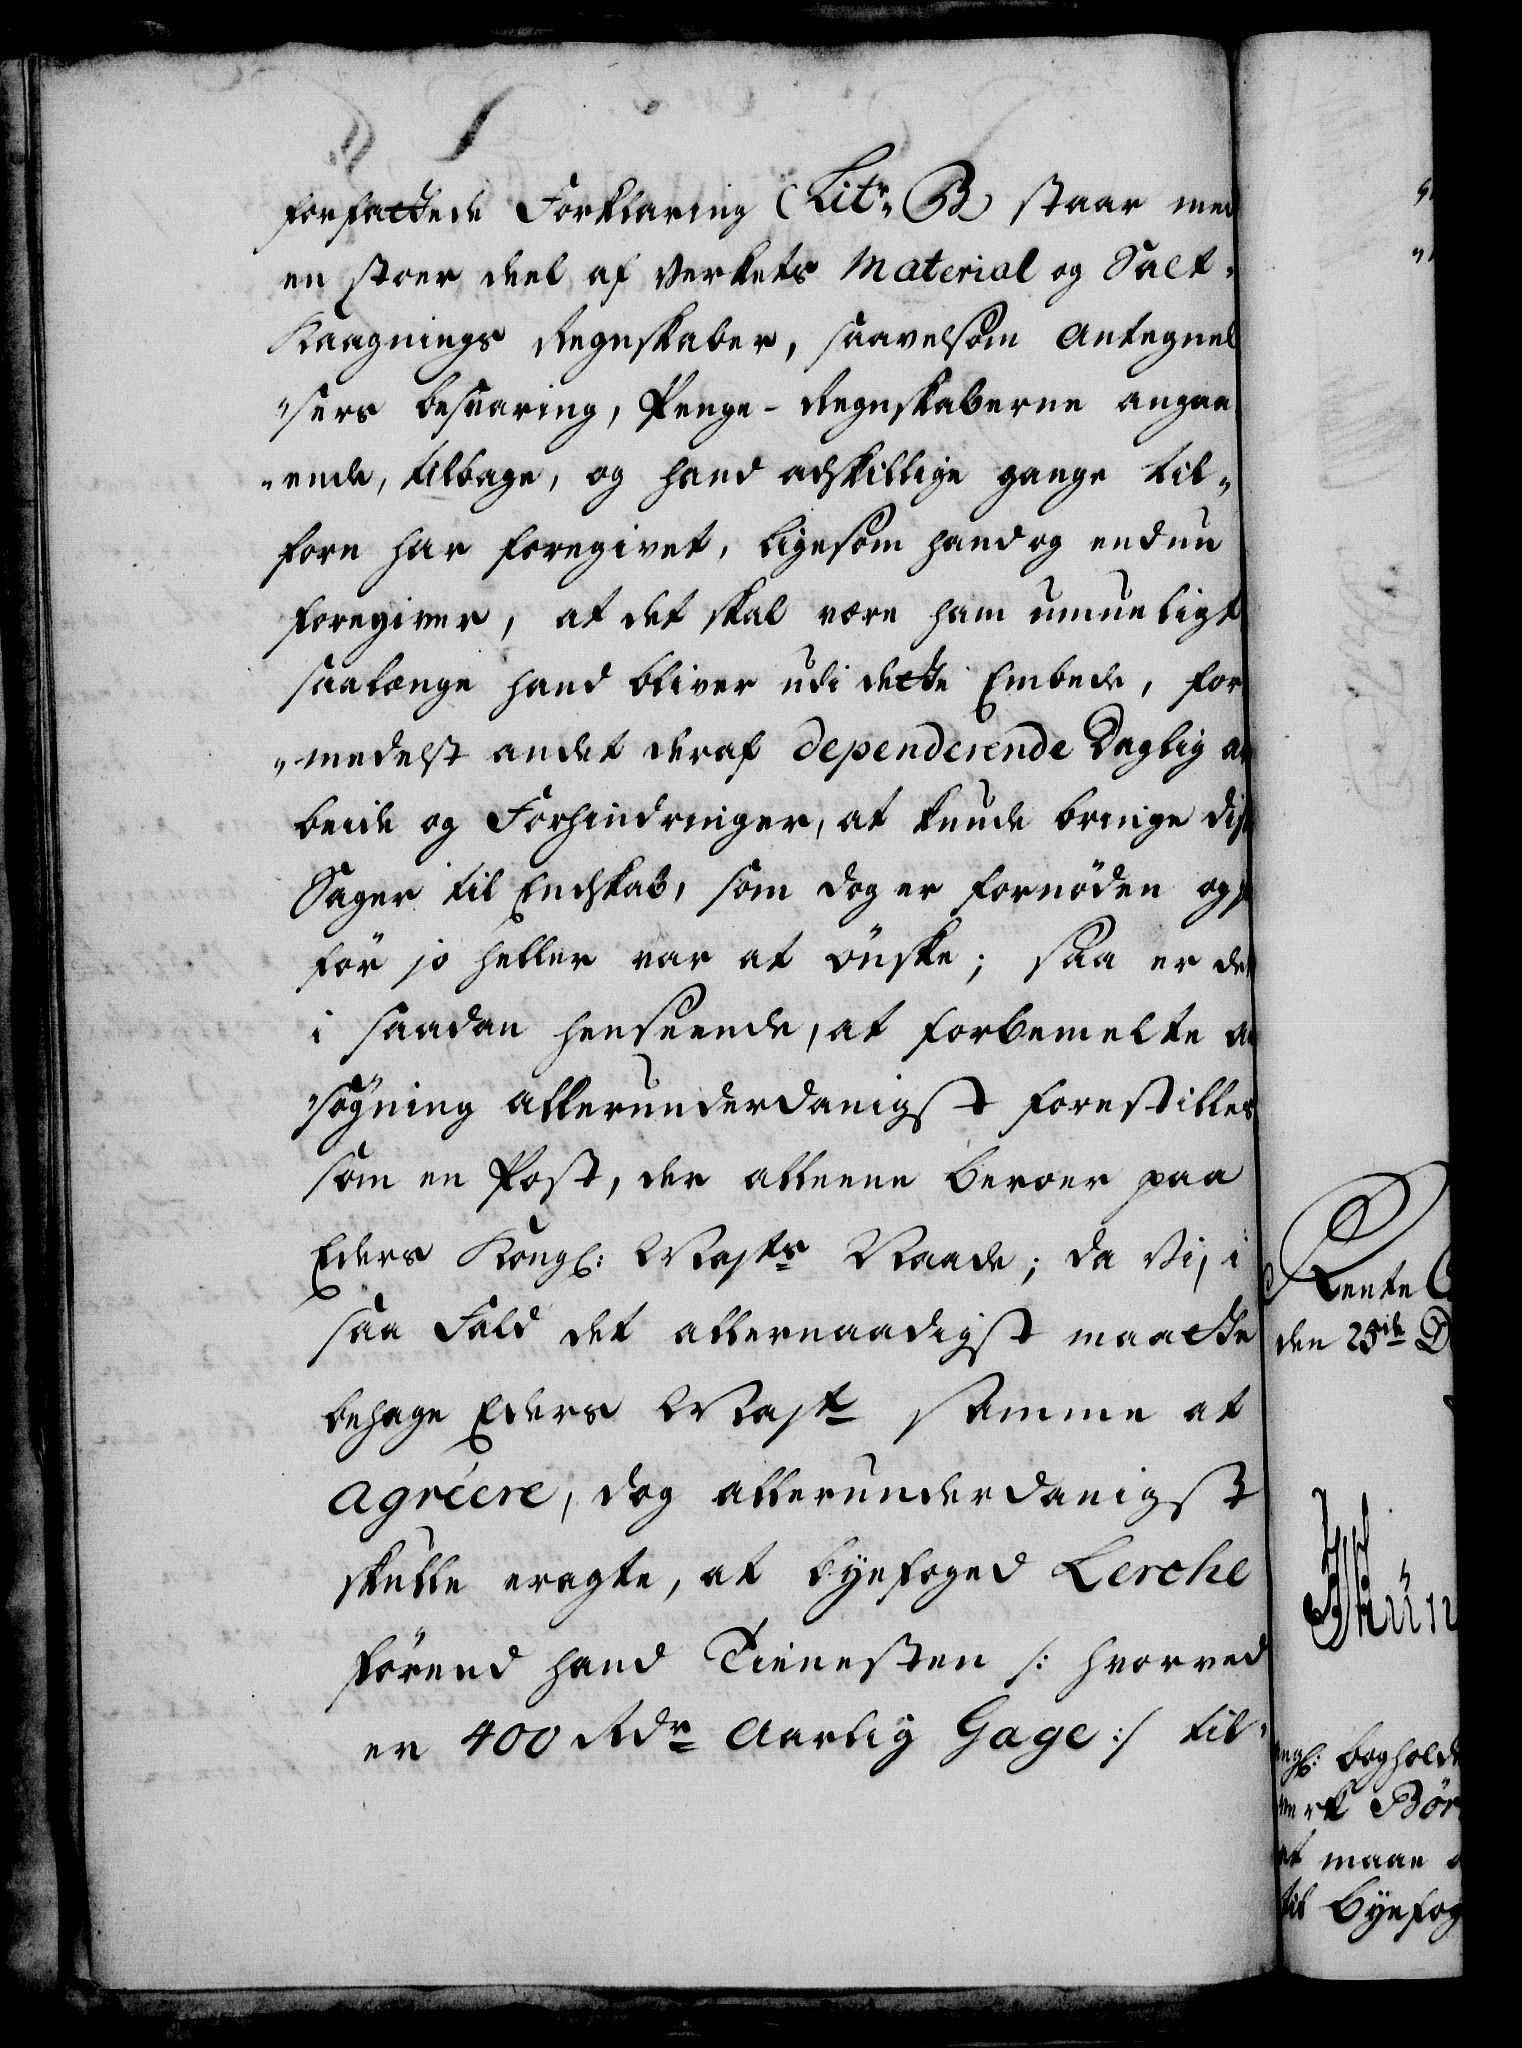 forfattede Forklaring (Litr. B) staar med
en stoer deel af Verkets Material og Salt-
Kaagnings Regnskaber, saavelsom Antegnel
"sers besvaring, Penge-Regnskaberne angaa
"ende, tilbage, og hand adskillige gange til-
forn har foregivet, ligesom hand og endnu
foregiver, at det skal være ham umueligt
saalænge hand bliver udi dette Embede, for
"medelst andet deraf dependerende Daglig ar
beide og Forhindringer, at kunde bringe disse
Sager til Endskab, som dog er fornöden og
för jo heller var at önske; saa er det
i saadan henseende, at forbemelte an
"søgning allerunderdanigst forestilles
som en Post, der alleene beroer paa
Eders Kongl: Mayts Naade; da Vi, i
saa Fald det allernaadigst maatte
behage Eders Mayt samme at
agréere, dog allerunderdanigst
skulle eragte, at byefoged Lerche
förend hand Tienesten /: hvorved
er 400 Rdr Aarlig Gage :/ til-
Rente
den 25de D
bogholde
verk Bör
at maae
til Byefog